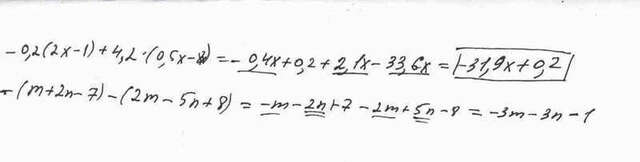 -0,2(2x-1)+4,2·(0,5x-8)=-0,4x+0,2+2,1x-33,6x=-31,9x+0,2
-(m+2n-7)-(2m-5n+8)=-m-2n+7-2m+5n-8=-3m-3n-1